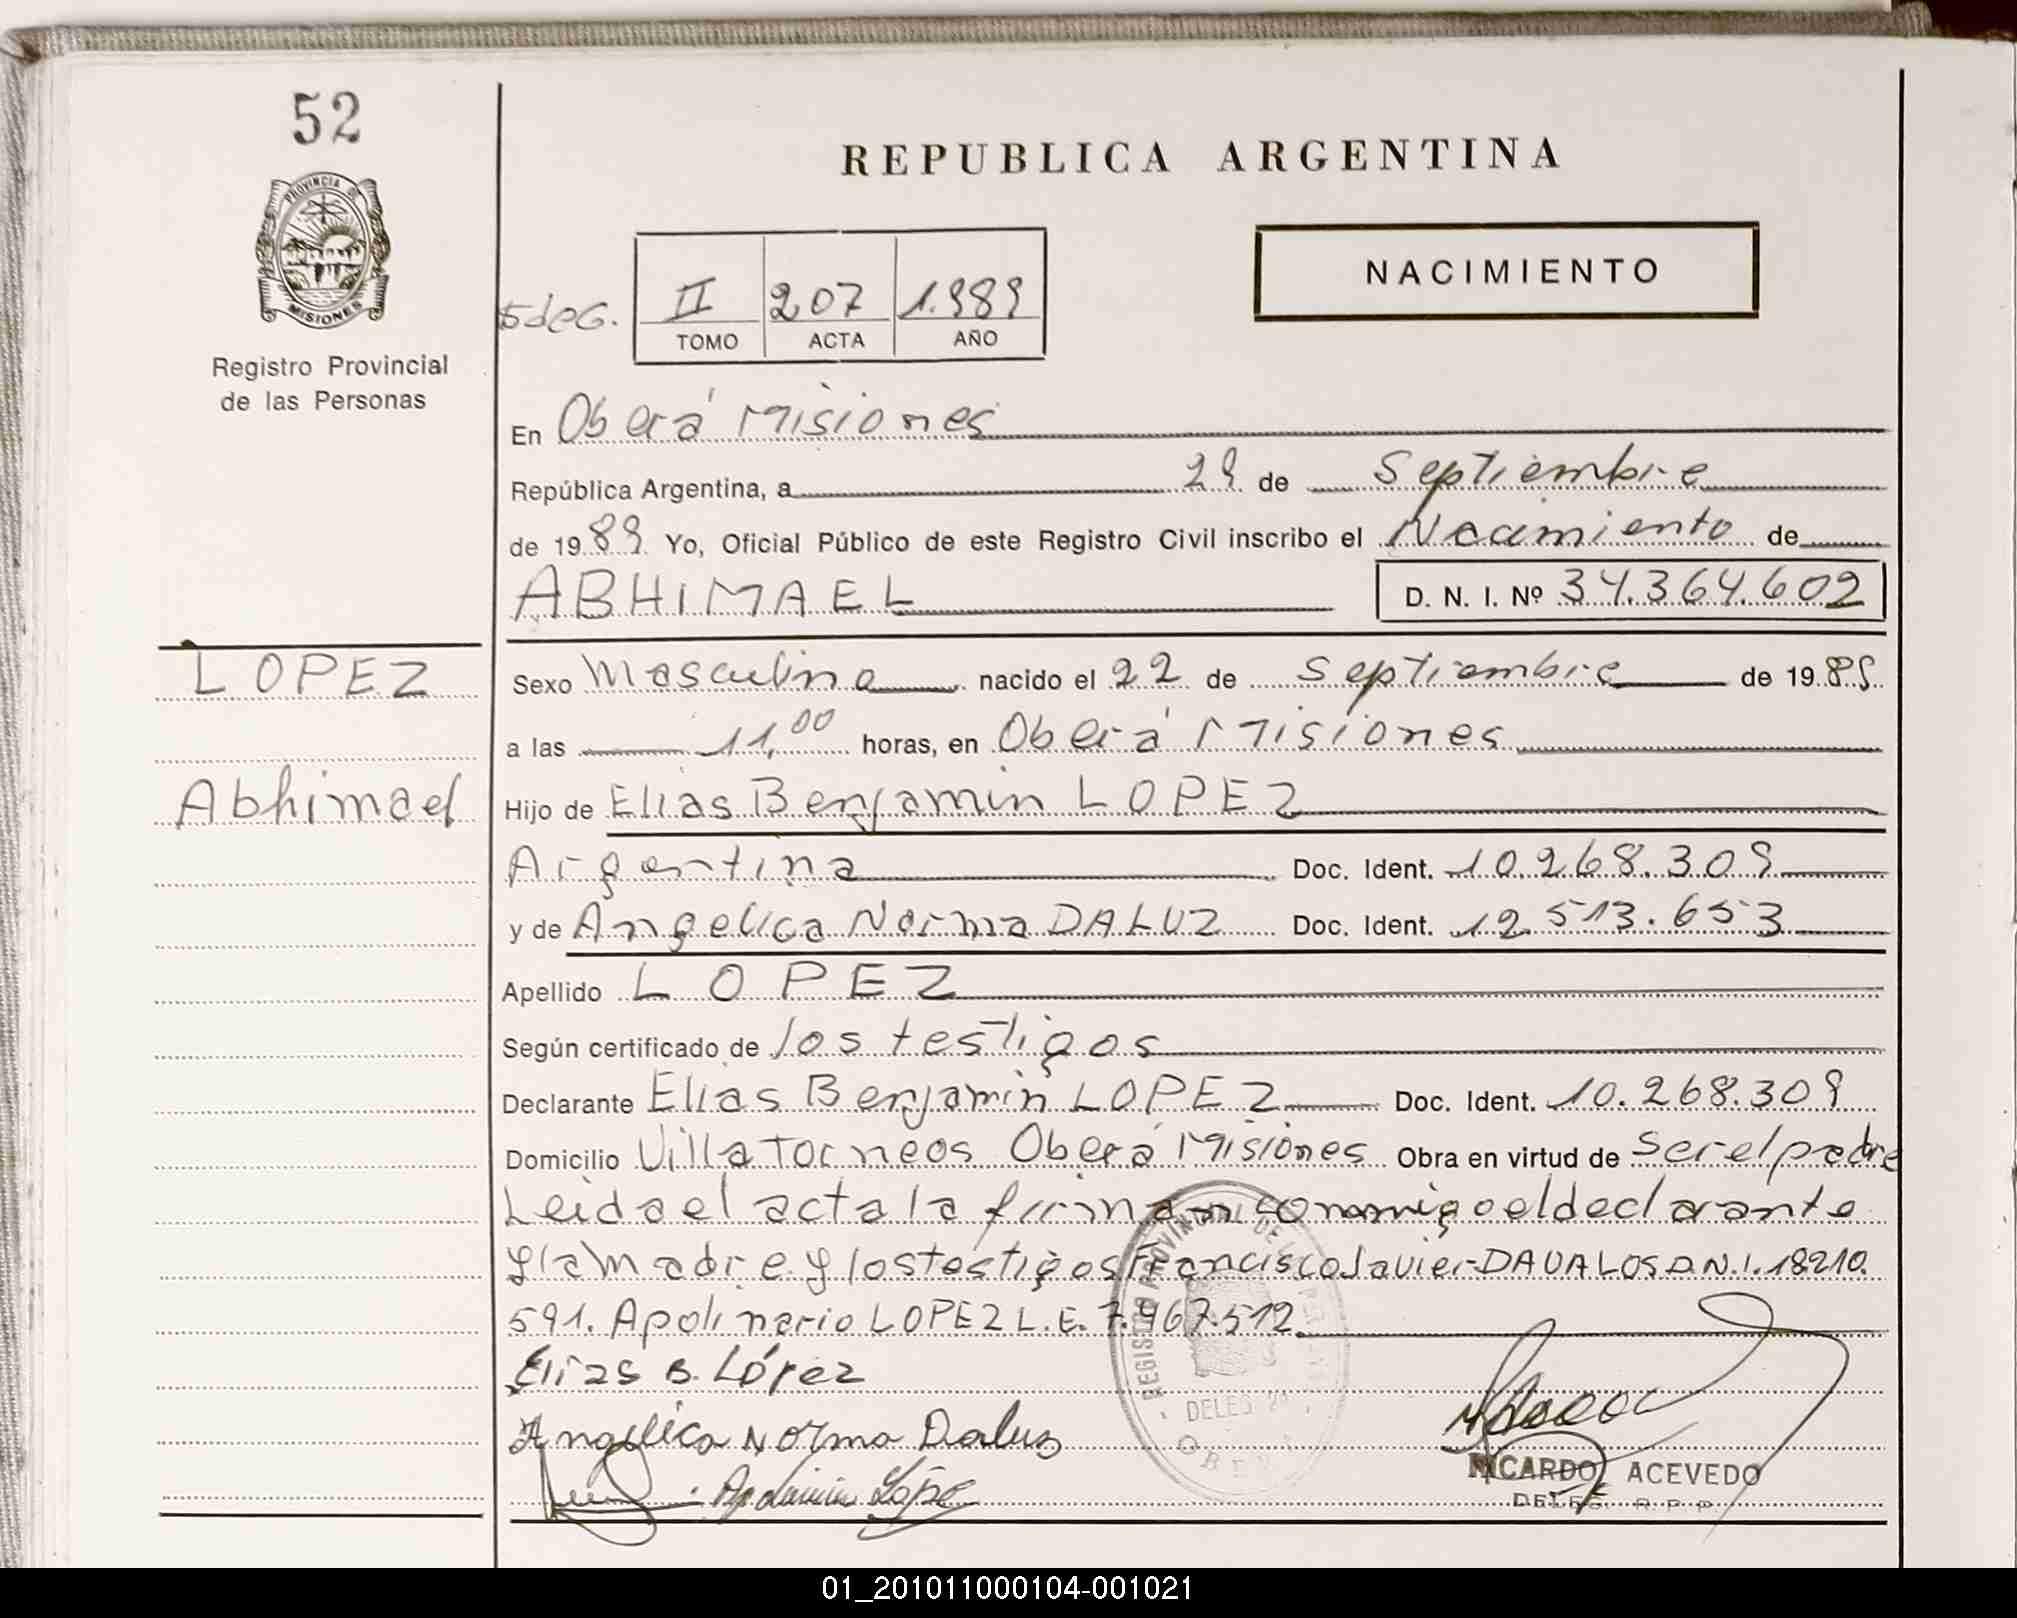 52
PROVINCIA D
MISIONES
Registro Provincial
de las Personas
LOPEZ
Abhimael
REPUBLICA ARGENTINA
NACIMIENTO
II 207 1.989
TOMO ACTA AÑO
En Oberá Misiones
República Argentina, a 29 de Septiembre
de 1989 Yo, Oficial Público de este Registro Civil inscribo el Nacimiento de
ABHIMAEL D. N. I. Nº 34.364.602
Sexo Masculino nacido el 22 de Septiembre de 1989
a las 11,00 horas, en Oberá Misiones
Hijo de Elias Benjamin LOPEZ
Argentina Doc. Ident. 10.268.309
y de Angelica Norma DALUZ Doc. Ident. 12.513.653
Apellido LOPEZ
Según certificado de los testigos
Declarante Elias Benjamin LOPEZ Doc. Ident. 10.268.309
Domicilio Villa Torneos Oberá Misiones Obra en virtud de ser el padre
Leida el acta la firman conmigo el declarante
y la Madre y los testigos Francisco Javier DAVALOS D.N.I. 18210.
591. Apolinario LOPEZ L.E. 7.967.512
Elias B. López
Angelica Norma Daluz
López
REGISTRO PROVINCIAL DE
DELEG
RICARDO ACEVEDO
DELEG. R. P. P.
01_201011000104-001021